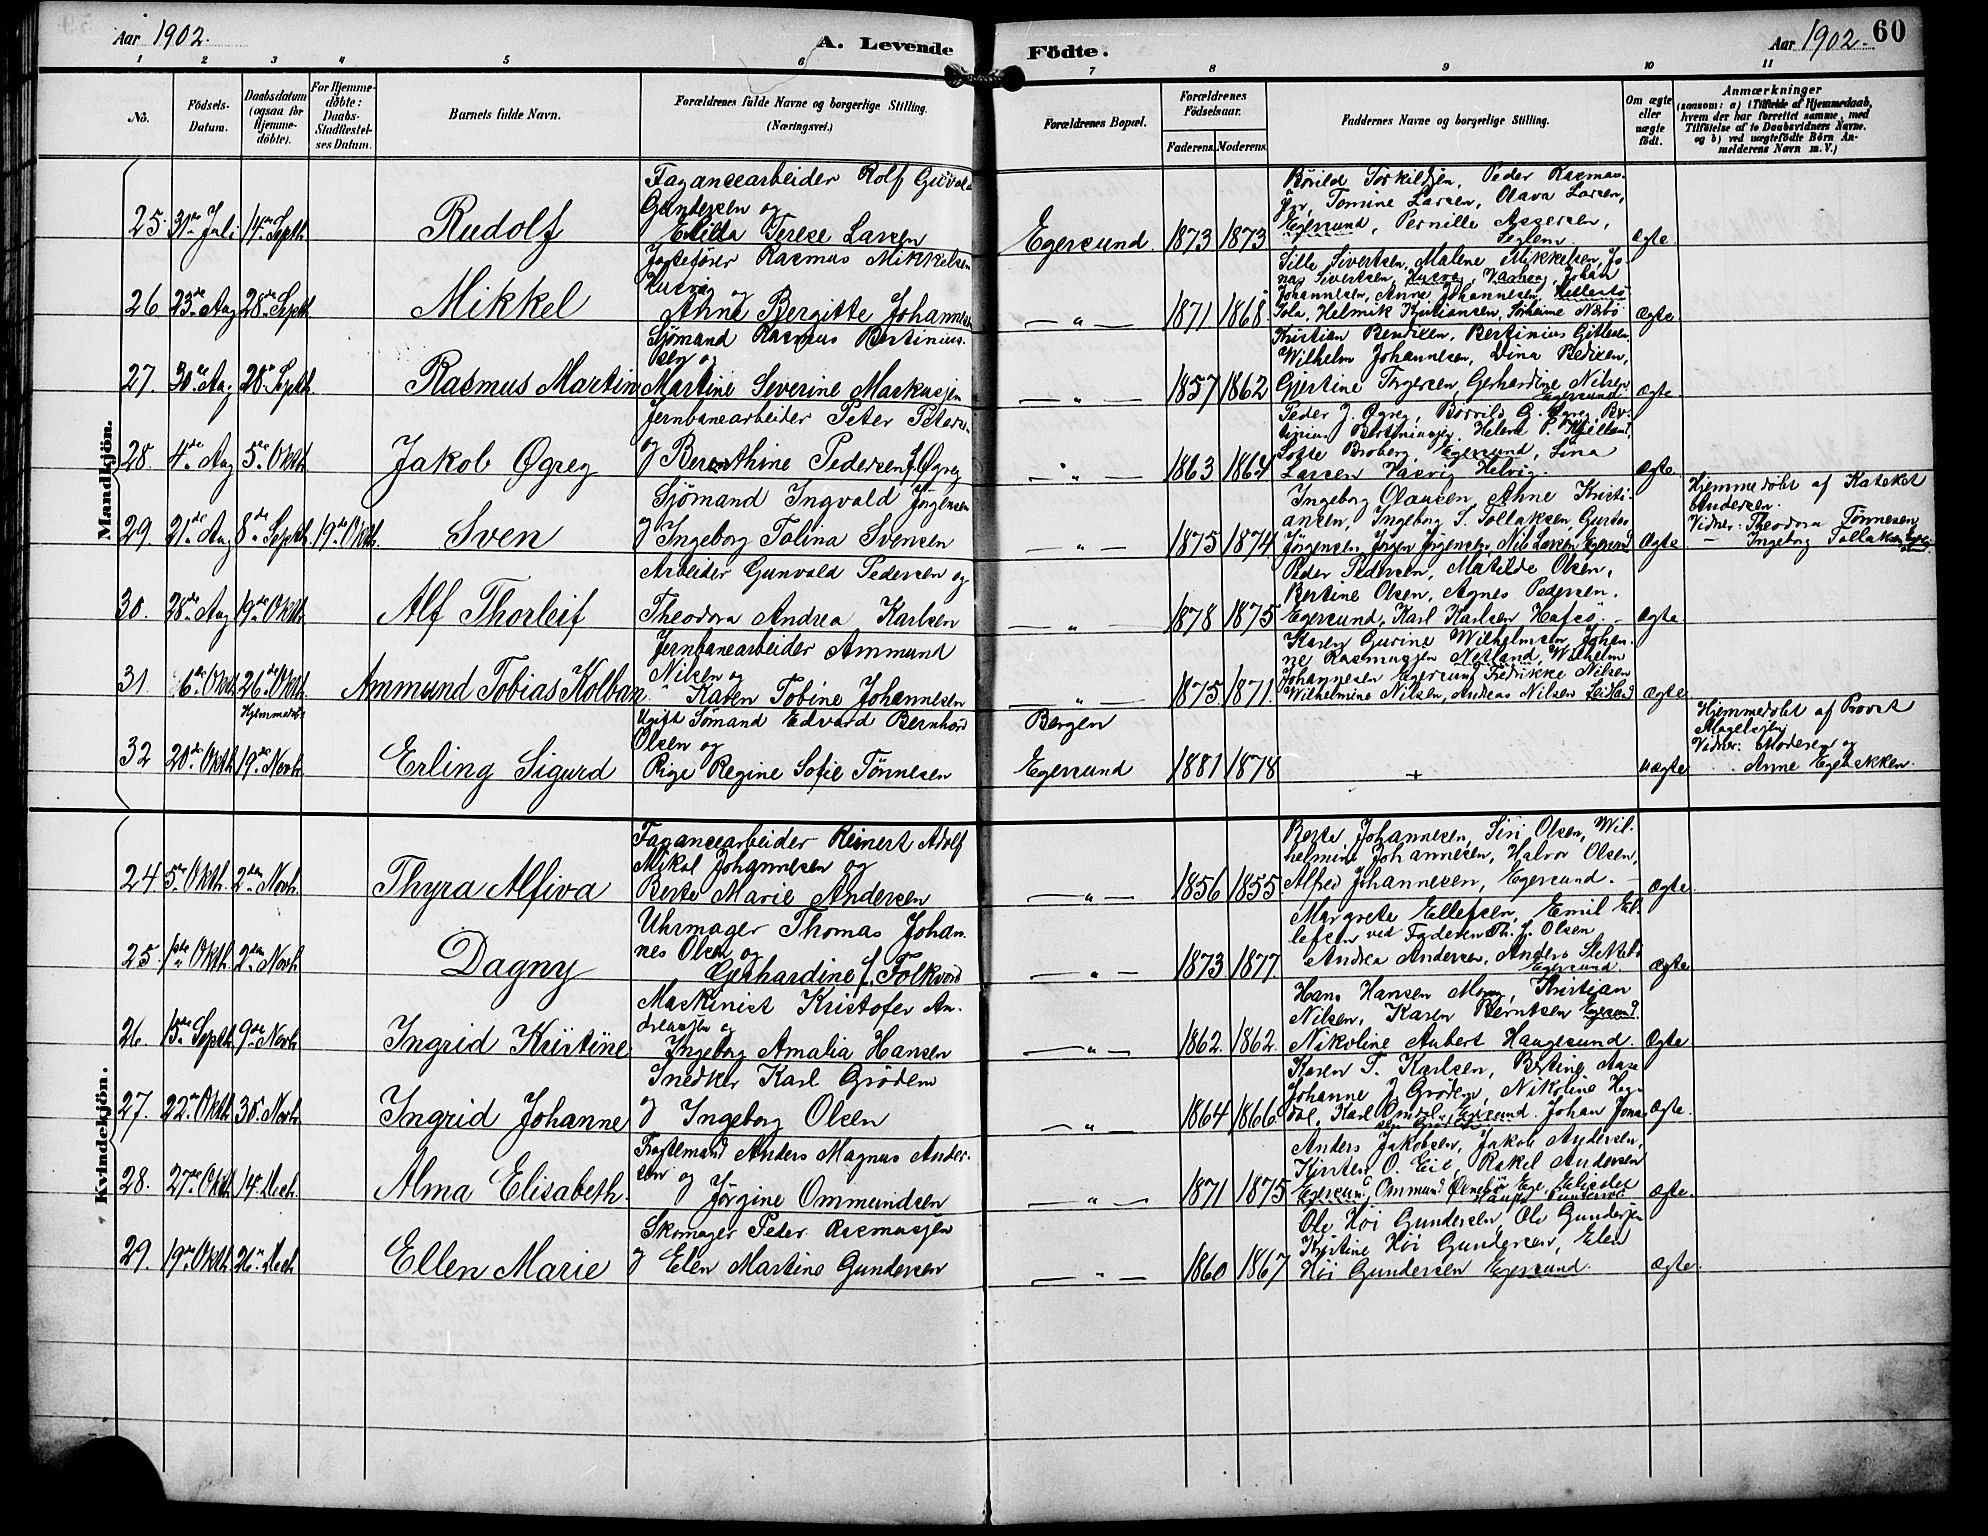 Aar 1902.
A. Levende
Födte.
Aar 1902.
60
1 2 3 4 5 6 7 8 9 10 11
No.
Födsels-
Datum.
Daabsdatum
(ogsaa för
Hjemme-
döbte).
For Hjemme-
döbte:
Daabs-
Stadfæstel-
ses Datum.
Barnets fulde Navn.
Forældrenes fulde Navne og borgerlige Stilling.
(Næringsvei.)
Forældrenes Bopæl.
Forældrenes
Födselsaar.
Faderens. Moderens.
Faddernes Navne og borgerlige Stilling.
Om ægte
eller
uægte
födt.
Anmærkninger
(saasom: a) i Tilfælde af Hjemmedaab,
hvem der har forrettet samme, med
Tilföielse af to Daabsvidners Navne,
og b) ved uægtefödte Börn An-
melderens Navn m. V.)
Mandkjön.
25. 31te Juli 14de Septh. Rudolf
Fayancearbeider Rolf Gunvald
Gundersen og
Elida Terese Larsen
Egersund 1873 1873
Børild Torkildsen, Peder Rasmus-
sen, Tomine Larsen, Olava Larsen,
Egersund, Pernille Assersen,
Ægte
26 23de Aug 28de Septh Mikkel
Jagtefører Rasmus Mikkelsen
Husvæg og
Anne Bergitte Johannes
— " — 1871 1868
Sille Sivertsen, Malene Mikkelsen, Jo-
na Sivertsen, Husvæg, Johan
Johannesen, Anne Johannesen,
Sola, Helmik Kristiansen,
Ægte
27. 30te Aug 28de Septh. Rasmus Martin
Sjömand Rasmus Bertinius-
sen og
Martine Severine Markussen
— " — 1857 1862
Kristian Bendixen, Bertinius Gitlesen,
Wilhelm Johannesen, Dina Bedixen,
Gjertine Torgersen Gerhardine Nilsen
Egersund
Ægte.
28 4de Aug 5te Okth. Jakob Øgrey
Jernbanearbeider Peter Petersen
og Berenthine Pedersen f. Øgrey
— " — 1863 1864
Peder J. Øgrey, Børrild G. Øgrey, Ber-
tinius Bertiniussen, Helene P. Kjelland,
Lotte Broberg, Egersund, Lina
Larsen Hasvig Helvig.
Ægte
29. 21de Aug 8de Septh. 19de Okth. Sven
Sjömand Ingvald Jörgensen
og Ingeborg Tolina Svensen
— " — 1875 1874
Ingeborg Olausen, Anne Kristi-
ansen, Ingeborg S. Tollaksen, Gustav
Jørgensen, Jørgen Jørgensen, Nils Larsen Egersund
Ægte
Hjemmedøbt af Kateket
Andersen.
Vidner: Theodora Tönnesen
— Ingeborg Tollaksen
30. 28de Aug 19de Okth. Alf Thorleif
Arbeider Gunvald Pedersen og
Theodora Andrea Karlsen
— " — 1878 1875
Peder Pedersen, Matilde Olsen,
Bertine Olsen, Agnes Pedersen.
Egersund, Karl Karlsen Hafsö.
Ægte.
31 6te Okth 26de Okth. Ammund Tobias Kolban
Jernbanearbeider Ammund
Nilsen og
Karen Tobine Johannesen
— " — 1875 1871.
Karen Gurine Wilhelmsen, Johan-
ne Rasmussen Netland, Wilhelm
Johannesen Egersund, Fredrikke Nilsen
Wilhelmine Nilsen, Andreas Nilsen Leidland
Ægte.
32 20de Okth. Hjemmedøbt 19de Novh. Erling Sigurd
Ugift Sömand Edvard Bernhard
Olsen og
Pige Regine Sofie Tönnesen
Bergen
Egersund 1881 1878 + uægte
Hjemmedøbt af Provst
Magelssen
Vidner: Moderen og
Anne Egebakken.
Kvindekjön.
24 5te Okth. 2den Novh. Thyra Alfiva
Fayancearbeider Reinert Adolf
Mikal Johannesen og
Berte Marie Andersen
— " — 1856 1855
Berte Johannesen, Siri Olsen, Wil-
helmine Johannesen, Halvor Olsen,
Alfred Johannesen, Egersund.
Ægte.
25 1ste Okth. 2den Novh Dagny
Uhrmager Thomas Johan-
nes Olsen og
Gerhardine f. Folkvord
— " — 1873 1877.
Margrete Ellefsen, Emil El-
lefsen ved Faderen Th. J. Olsen
Andrea Andersen, Anders Slettebø
Egersund
Ægte
26. 15de Septh 9de Novh Ingrid Kristine
Maskinist Kristofer An-
dreassen og
Ingeborg Amalia Hansen
— " — 1862. 1862.
Hans Hansen Mong, Kristian
Nilsen, Karen Berntsen Egersund.
Nikoline Aubert Haugesund.
Ægte
27. 22de Okth 30te Novh. Ingrid Johanne
Snedker Karl Grödem
og Ingeborg Olsen
— " — 1864 1866.
Karen T. Karlsen, Bertine Aase
Johanne J. Grödem, Nikoline Heg-
dal, Karl Omdal, Egersund. Johan Jona-
sen Grödem
Ægte
28. 27de Okth 14de Dech. Alma Elisabeth
Fragtemand Anders Magnus Ander-
sen og
Jörgine Ommundsen
— " — 1871 1875
Anders Jakobsen, Jakob Andersen,
Kirsten O. Eie, Rakel Andersen
Egersund, Ommund
Ægte.
29. 19de Okth 26de Dech. Ellen Marie
Skomager Peder Rasmussen
og Elen Martine Gundersen
— " — 1860 1867
Ole Höi Gundersen, Ole Gundersen
Kristine Höi Gundersen, Elen
Höi Gundersen Egersund.
Ægte.